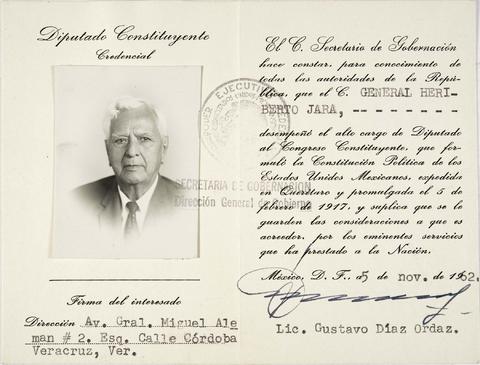 Diputado Constituyente
Credencial
PODER EJECUTIVO FEDERAL
SECRETARIA DE GOBERNACION
Dirección General de Gobierno
Firma del interesado
Dirección Av. Gral. Miguel Ale
man # 2. Esq. Calle Córdoba
Veracruz, Ver.
El C. Secretario de Gobernación
hace constar, para conocimiento de
todas las autoridades de la Repú-
blica, que el C. GENERAL HERI-
BERTO JARA, - - - - - - - -
desempeñó el alto cargo de Diputado
al Congreso Constituyente, que for-
muló la Constitución Política de los
Estados Unidos Mexicanos, expedida
en Querétaro y promulgada el 5 de
febrero de 1917, y suplica que se le
guarden las consideraciones a que es
acreedor, por los eminentes servicios
que ha prestado a la Nación.
México, D. F., a 5 de nov. de 1962.
Lic. Gustavo Díaz Ordaz.